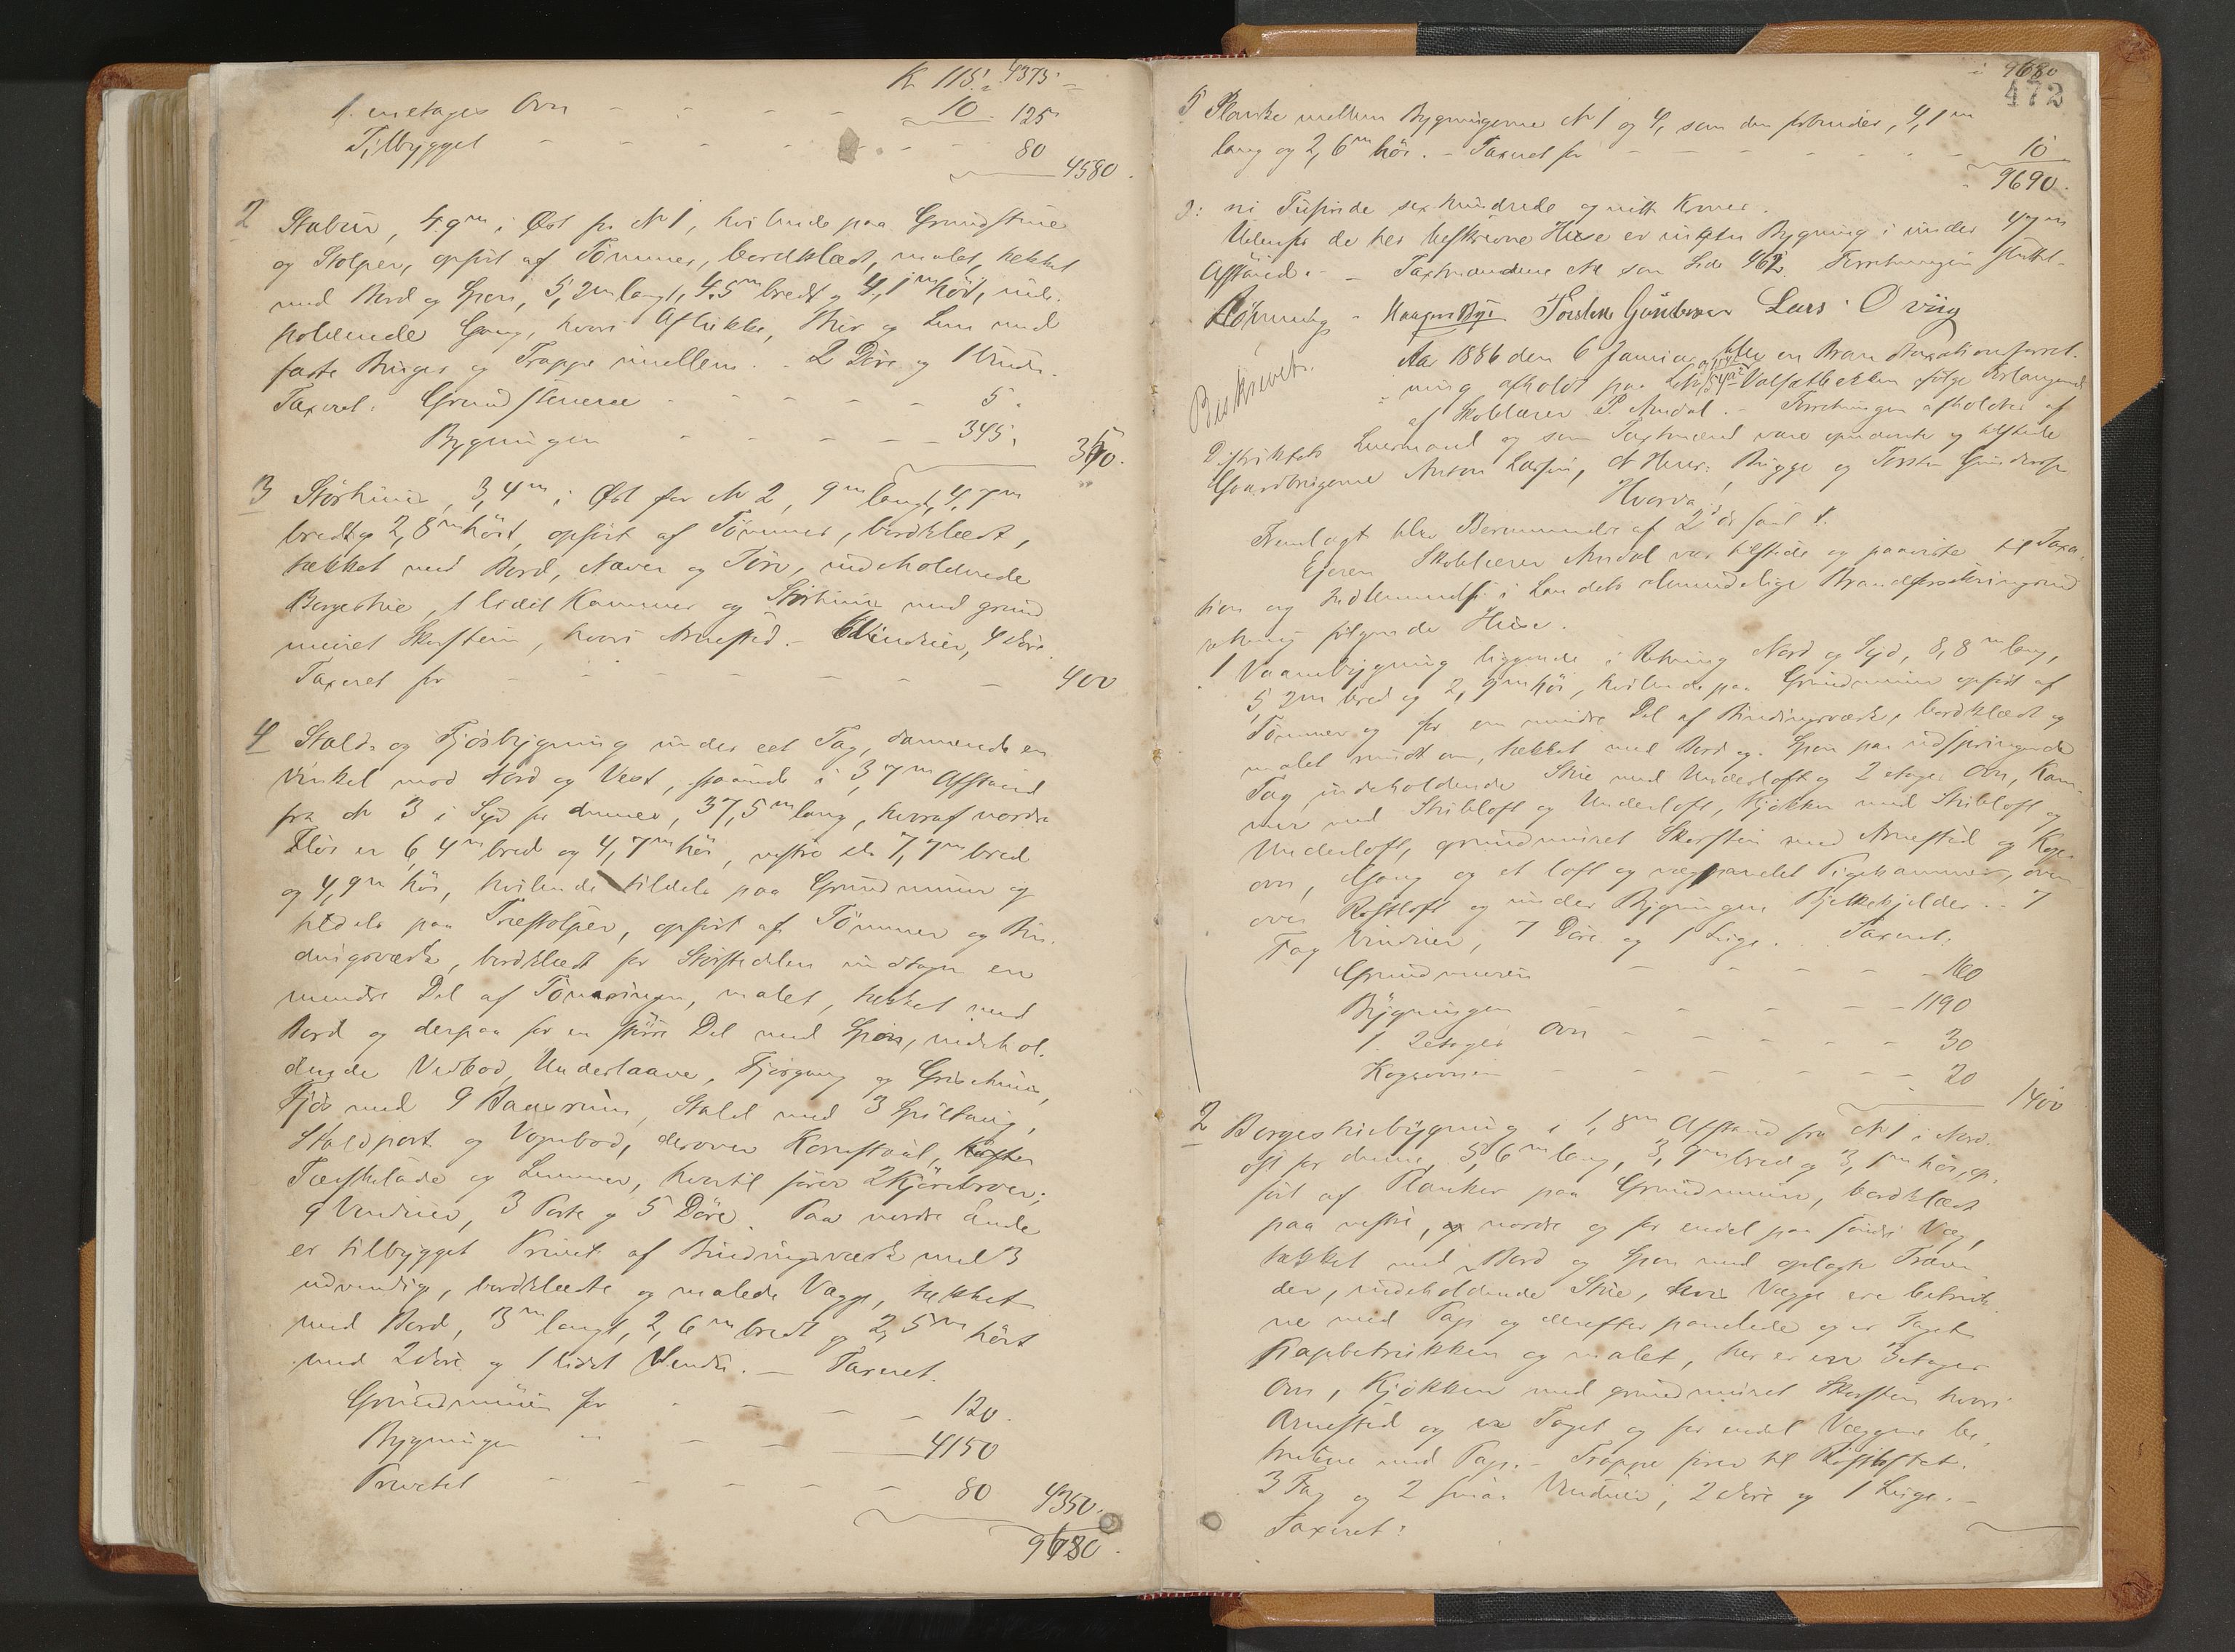 K 115. 4375
1. enetages Ovn - - - - 10 125
Tilbygget - - - - 80
4580.
2 Stabur, 4.9m i Øst for No 1, hvilende paa Grundstene
og Stolper, opført af Tømmer, bordklædt, malet, tækket
med Bord og Spon, 5,2m langt, 4.5m bredt og 4,1m høit, inde-
holdende Gang, hvori Aflukke, Bur og Lem med
faste Binger og Trappe imellem. 2 Døre og 1 Vindu.
Taxeret: Grundstenene - - - - 5.
Bygningen - - - - 345.
350.
3 Størhuus, 3,4m i Øst for No 2, 9m langt, 4,7m
bredt og 2,8m høit, opført af Tømmer, bordklædt,
tækket med Bord, Næver og Törv, indeholdende
Borgestue, 1 lidet Kammer og Størhuus med grund
muret Skorsten, hvori Arnested. 6 Vinduer, 4 Döre.
Taxeret for - - - - 400
4 Stald- og Fjösbygning under eet Tag, dannende en
Vinkel mod Nord og Vest, staaende i 3,7m Afstand
fra No 3 i Syd for denne, 37,5m lang, hvoraf nordre
Fløi er 6,4m bred og 4,7m høi, vestre do 7,7m bred
og 4,9m høi, hvilende tildels paa Grundmuur og
tildels paa Træstolper, opført af Tömmer og Bin-
dingsværk, bordklædt for Störstedelen undtagen en
mindre Del af Tömmeringen, malet, tækket med
Bord og derpaa for en större Del med Spon, indehol-
dende Vedbod, Underlaave, Fjösgang og Grisehuus,
Fjös med 9 Baaserum, Stald med 3 Spiltaug,
Staldport og Vognbod, derover Kornstaal,
Tærskelade og Lemmer, hvortil förer 2 Kjörebroer;
9 Vinduer, 3 Porte og 5 Döre. Paa nordre Ende
er tilbygget Privet af Bindingsværk med 3
udvendig, bordklædte og malede Vægge, tækket
med Bord, 3m langt, 2,6m bredt og 2,5m höit
med 2 Döre og 1 lidet Vindu. - Taxeret.
Grundmuren for - - - - 120.
Bygningen " - - - 4150
Privetet - - - - 80 4350.
9680.
9680
472
5 Planke mellem Bygningerne No 1 og 4, som den forbinder, 4,1m
lang og 2,6m höi. - Taxeret for - - - - 10
9690.
ɔ: ni Tusinde sex hundrede og nitti Kroner.
Udenfor de her beskrevne Huse er ingen Bygning i under
Afstand. - Taxtmændene No som Side 462. Forretningen sluttet.
Torsten Gundersen Lars Oviig
Beskrevet. Aar 1886 den 6 Januar blev en Brandtaxationsforret-
ning afholdt paa Valsætbekken ifölge Forlangende
af Skolelærer P. Årsdal. - Forretningen afholdes af
Distriktets Lensmand og som Taxtmænd vare opnævnte og tilstede
Gaardbrugerne Anton Larsen, Brygge og Torsten Gundersen
Hvorda!
Fremlagt blev Berammelse af 2 ds saal.
Ejeren Skolelærer Årsdal var tilstede og paaviste til Taxa-
tion og Indlemmelse i Landets almindelige Brandforsikringsind
retning fölgende Huse.
1 Vaanebygning liggende i Retning Nord og Syd, 8,8m lang,
5,2m bred og 2,9m höi, hvilende paa Grundmuur opfört af
Tömmer og for en mindre Del af Bindingsværk, bordklædt og
malet rundt om, tækket med Bord og Spon paa udspringende
Tag, indeholdende Stue med Underloft og 2 etages Ovn, Kam-
mer med Stribloft og Underloft, Kjøkken med Stribloft og
Underloft, grundmuret Skorsten med Arnested og Koge-
ovn, Gang og et loft og vægpanelet Pigekammer, oven
over Röstloft og under Bygningen Bjelkekjelder. 7
Fag Vinduer, 7 Döre og 1 Luge. Taxeret:
Grundmuren - - - - 160
Bygningen - - - - 1190
1. 2 etages Ovn - - - - 30
Kogeovnen - - - - 20
1400
2 Borgestuebygning i 1,8m Afstand fra No 1 i Nord-
öst for denne, 5,6m lang, 3,9m bred og 3,1m höi, op-
fört af Planker paa Grundmuur, bordklædt
paa vestre, nordre og for endel paa söndre Væg,
tækket med Bord og Spon med oplagte Træver
der, indeholdende Stue, hvis Vægge ere betruk-
ne med Pap og derefter panelede og er Taget
Papbetrukken og malet, her er en 3 etages
Ovn, Kjökken med grundmuret Skorsten hvori
Arnested og er Taget og for endel Væggene be-
trukne med Pap. - Trappe förer til Röstloftet.
3 Fag og 2 smaa Vinduer, 2 Döre og 1 Luge. -
Taxeret: